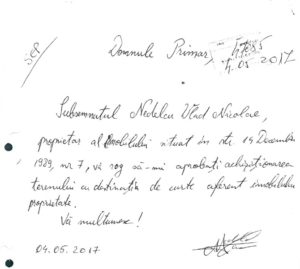 SEP
Domnule Primar,
4.05 2017
Subsemnatul Nedelcu Vlad Nicolae,
proprietar al imobilului situat în str. 14 Decembrie
1989, nr 7, vă rog să-mi aprobați achiziționarea
terenului cu destinația de curte aferent imobilului
proprietate.
Vă mulțumesc!
04.05.2017